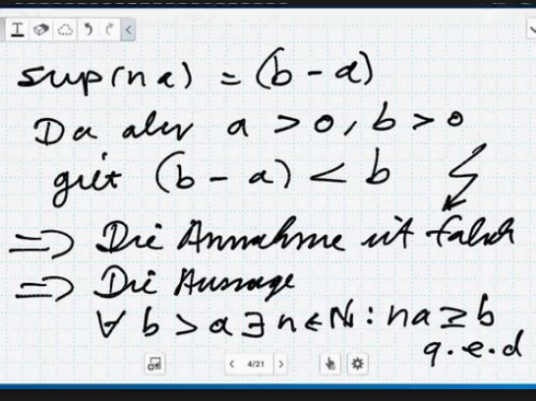 sup(na) = (b - a)
Da aber a > 0, b > 0
gilt (b - a) < b ↯
=> Die Annahme ist falsch
=> Die Aussage
∀ b > a ∃ n ∈ ℕ : na ≥ b
q.e.d
4/21